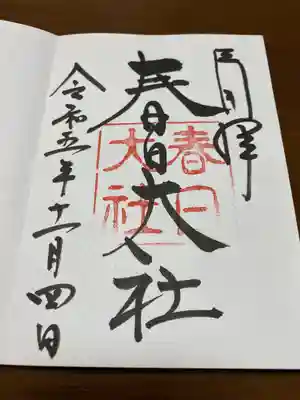 奉拝
春日大社
春日
大社
令和五年十一月四日